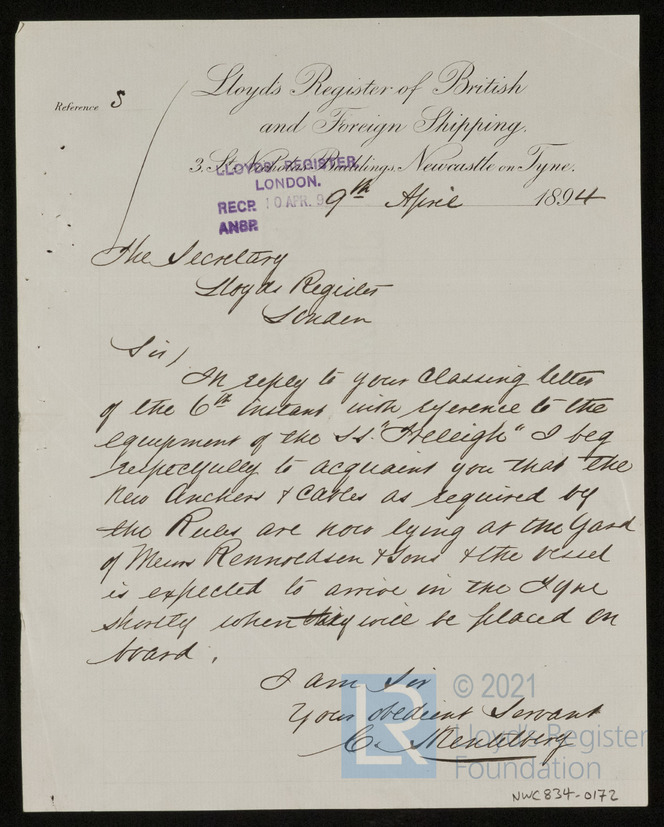 Lloyds Register of British
Reference 5
and Foreign Shipping.
3. St. Nicholas Buildings, Newcastle on Tyne.
LLOYDS' REGISTER
LONDON.
RECD. 10 APR. 9
ANSR
9th April 1894
The Secretary
Lloyds Register
London
Sir/
In reply to your Classing letter
of the 6th instant with reference to the
equipment of the S.S. " " I beg
respectfully to acquaint you that the
new Anchors & Cables as required by
the Rules are now lying at the Yard
of Messrs Rennoldson & Sons & the vessel
is expected to arrive in the Tyne
shortly when they will be placed on
board.
I am Sir
Your obedient Servant
C.
LR
© 2021
Lloyd's Register
Foundation
NWC834-0172